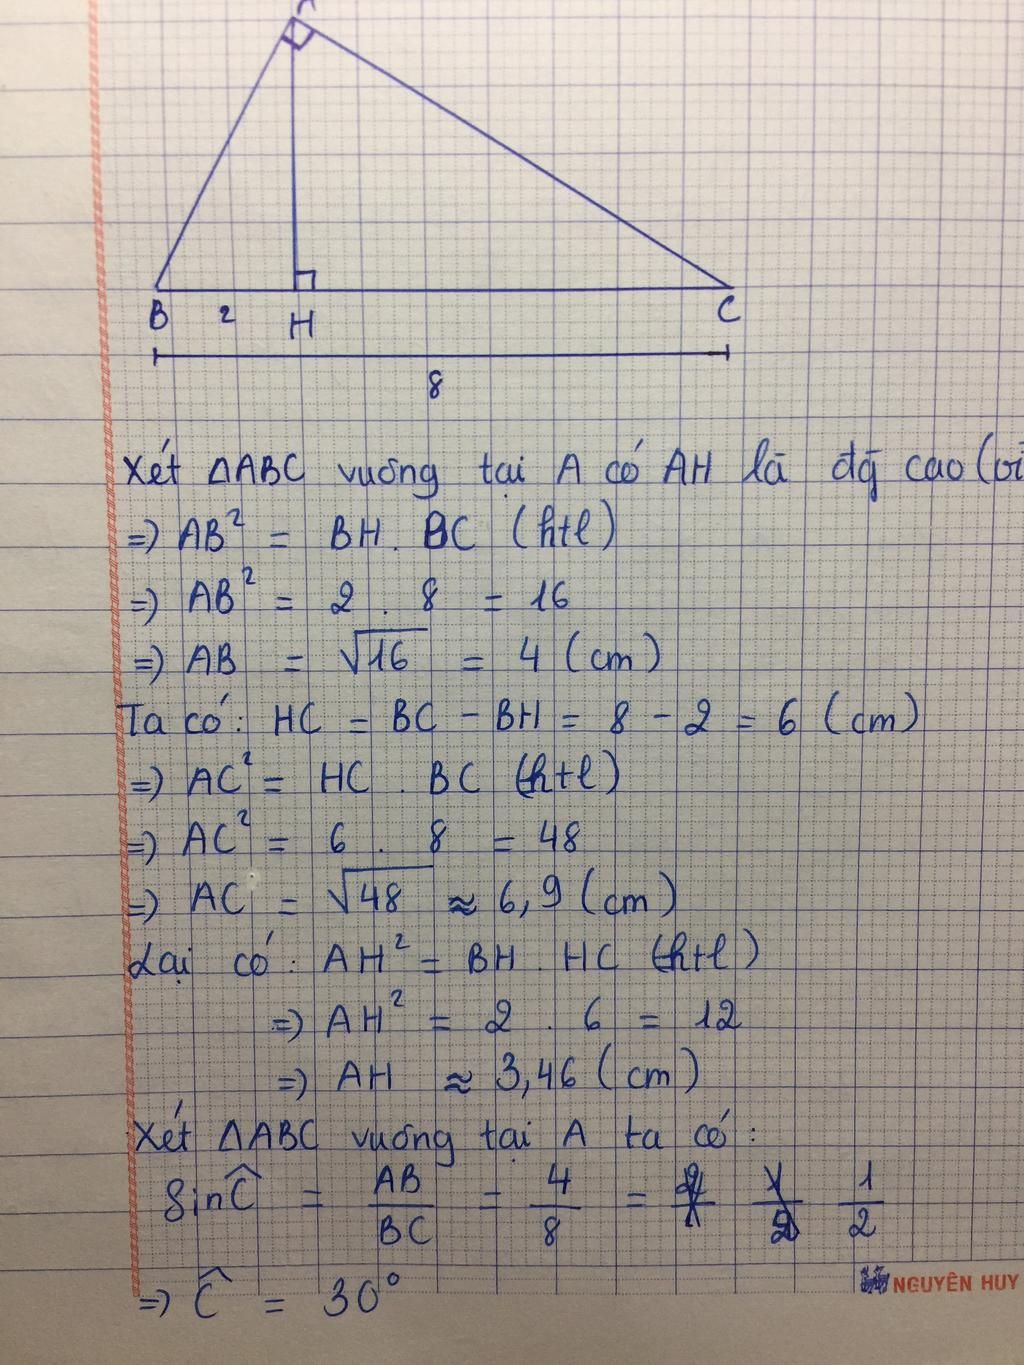 B 2 H C
8
Xét ΔABC vuông tại A có AH là đg cao
=> AB² = BH . BC (htl)
=> AB² = 2 . 8 = 16
=> AB = √16 = 4 (cm)
Ta có: HC = BC - BH = 8 - 2 = 6 (cm)
=> AC² = HC . BC (htl)
=> AC² = 6 . 8 = 48
=> AC = √48 ≈ 6,9 (cm)
Lại có: AH² = BH . HC (htl)
=> AH² = 2 . 6 = 12
=> AH ≈ 3,46 (cm)
Xét ΔABC vuông tại A ta có:
Sin Ĉ = AB/BC = 4/8 = 1/2
=> Ĉ = 30°
NGUYÊN HUY